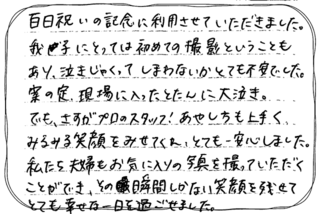 百日祝いの記念に利用させていただきました。
我が子にとっては初めての撮影ということも
あり、泣きじゃくってしまわないかとても不安でした。
案の定、現場に入ったとたんに大泣き。
でも、さすがプロのスタッフ！あやし方も上手く、
みるみる笑顔をみせてくれ、とても一安心しました。
私たち夫婦もお気に入りの写真を撮っていただく
ことができ、その瞬間しかない笑顔を残せて
とても幸せな一日を過ごせました。